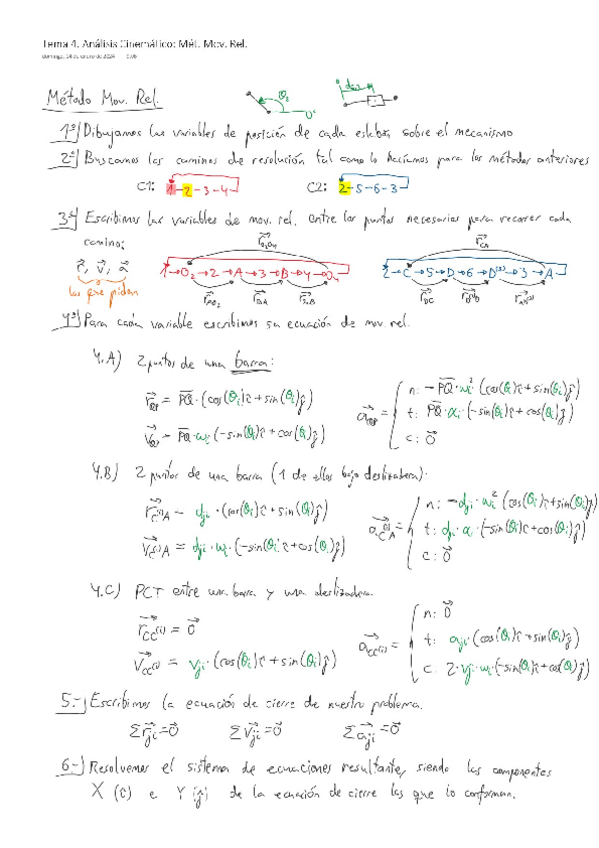 Tema 4. Análisis Cinemático: Mét. Mov. Rel.
domingo, 14 de enero de 2024
Método Mov. Rel.
1º) Dibujamos las variables de posición de cada eslabón sobre el mecanismo
2º) Buscamos los caminos de resolución tal como lo hacíamos para los métodos anteriores
C1: 1-2-3-4 C2: 2-5-6-3
3º) Escribimos las variables de mov. rel. entre los puntos necesarios para recorrer cada
camino:
r⃗, v⃗, a⃗
las que pidan
1→O₂→2→A→3→B→4→O₄
2→C→5→D→6→D⁽³⁾→3→A
4º) Para cada variable escribimos su ecuación de mov. rel.
4.A) 2 puntos de una barra:
n: -PQ·ωi²(cos(θi)î+sin(θi)ĵ)
= PQ·(cos(θi)î+sin(θi)ĵ)
t: PQ·αi·(-sin(θi)î+cos(θi)ĵ)
= PQ·ωi·(-sin(θi)î+cos(θi)ĵ)
c: 0⃗
4.B) 2 puntos de una barra (1 de ellos bajo deslizadera):
n: -dji·ωi²(cos(θi)î+sin(θi)ĵ)
= dji·(cos(θi)î+sin(θi)ĵ)
t: dji·αi·(-sin(θi)î+cos(θi)ĵ)
= dji·ωi·(-sin(θi)î+cos(θi)ĵ)
c: 0⃗
4.C) PCT entre una barra y una deslizadera
n: 0⃗
r⃗CC⁽ⁱ⁾ = 0⃗
t: aji·(cos(θi)î+sin(θi)ĵ)
v⃗CC⁽ⁱ⁾ = vji·(cos(θi)î+sin(θi)ĵ)
c: 2·vji·ωi·(-sin(θi)î+cos(θi)ĵ)
5.-) Escribimos la ecuación de cierre de nuestro problema.
Σr⃗ji=0⃗ Σv⃗ji=0⃗ Σa⃗ji=0⃗
6.-) Resolvemos el sistema de ecuaciones resultante, siendo las componentes
X (î) e Y (ĵ) de la ecuación de cierre las que lo conforman.